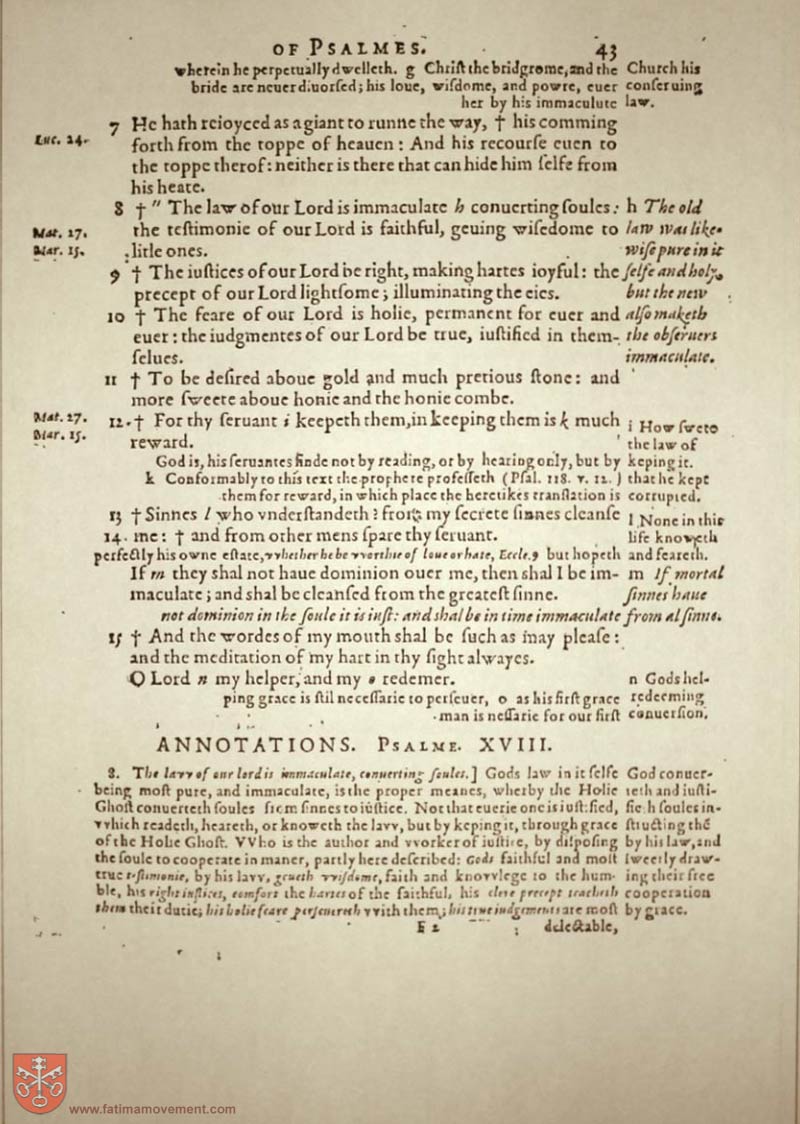 OF PSALMES. 43
wherein he perpetually dwelleth. g Chriſt the bridgrome, and the Church his
bride are neuer diuorſed; his loue, wiſdome, and powre, euer conſeruing
her by his immaculute law.
7 He hath reioyced as a giant to runne the way, † his comming
Luc. 24. forth from the toppe of heauen : And his recourſe euen to
the toppe therof: neither is there that can hide him ſelfe from
his heate.
8 † " The law of our Lord is immaculate h conuerting ſoules: h The old
Mat. 17. the teſtimonie of our Lord is faithful, geuing wiſedome to law was like-
Mar. 15. litle ones. wiſe pure in it
9 † The iuſtices of our Lord be right, making hartes ioyful: the ſelfe and holy,
precept of our Lord lightſome; illuminating the eies. but the new
10 † The feare of our Lord is holie, permanent for euer and alſo maketh
euer: the iudgmentes of our Lord be true, iuſtified in them- the obſeruers
ſelues. immaculate.
11 † To be deſired aboue gold and much pretious ſtone: and
more ſweete aboue honie and the honie combe.
Mat. 27. 12. † For thy ſeruant i keepeth them, in keeping them is k much i How ſwete
Mar. 15. reward. the law of
God is, his ſeruantes finde not by reading, or by hearing only, but by keping it.
k Conformably to this text the prophete profeſſeth (Pſal. 118. v. 12.) that he kept
them for reward, in which place the heretikes tranſlation is corrupted.
13 † Sinnes l who vnderſtandeth? from my ſecrete ſinnes cleanſe l None in this
14. me: † and from other mens ſpare thy ſeruant. life knoweth
perfectly his owne eſtate, vvhether he be vvorthie of loue or hate, Eccle. 9 but hopeth and feareth.
If m they shal not haue dominion ouer me, then shal I be im- m If mortal
maculate; and shal be cleanſed from the greateſt ſinne. ſinnes haue
not dominion in the ſoule it is iuſt: and shal be in time immaculate from al ſinne.
15 † And the wordes of my mouth shal be ſuch as may pleaſe:
and the meditation of my hart in thy ſight alwayes.
O Lord n my helper, and my o redemer. n Gods hel-
ping grace is ſtil neceſſarie to perſeuer, o as his firſt grace redeeming
man is neſſarie for our firſt conuerſion.
ANNOTATIONS. PSALME. XVIII.
8. The lavv of our lord is immaculate, conuerting ſoules.] Gods law in it ſelfe God conuer-
being moſt pure, and immaculate, is the proper meanes, wherby the Holie teth and iuſti-
Ghoſt conuerteth ſoules from ſinnes to iuſtice. Not that euerie one is iuſtified, fieth ſoules in-
vvhich readeth, heareth, or knoweth the lavv, but by keping it, through grace ſtructing thē
of the Holie Ghoſt. VVho is the author and vvorker of iuſtice, by diſpoſing by his law, and
the ſoule to cooperate in maner, partly here deſcribed: Gods faithful and moſt ſweetly draw-
true teſtimonie, by his lavv, geueth vviſdome, faith and knovvlege to the hum- ing their free
ble, his right iuſtices, comfort the hartes of the faithful, his clere precept teacheth cooperation
them their dutie; his holie feare perſeuereth vvith them; his true iudgements are moſt by grace.
F 2 delectable,
www.fatimamovement.com